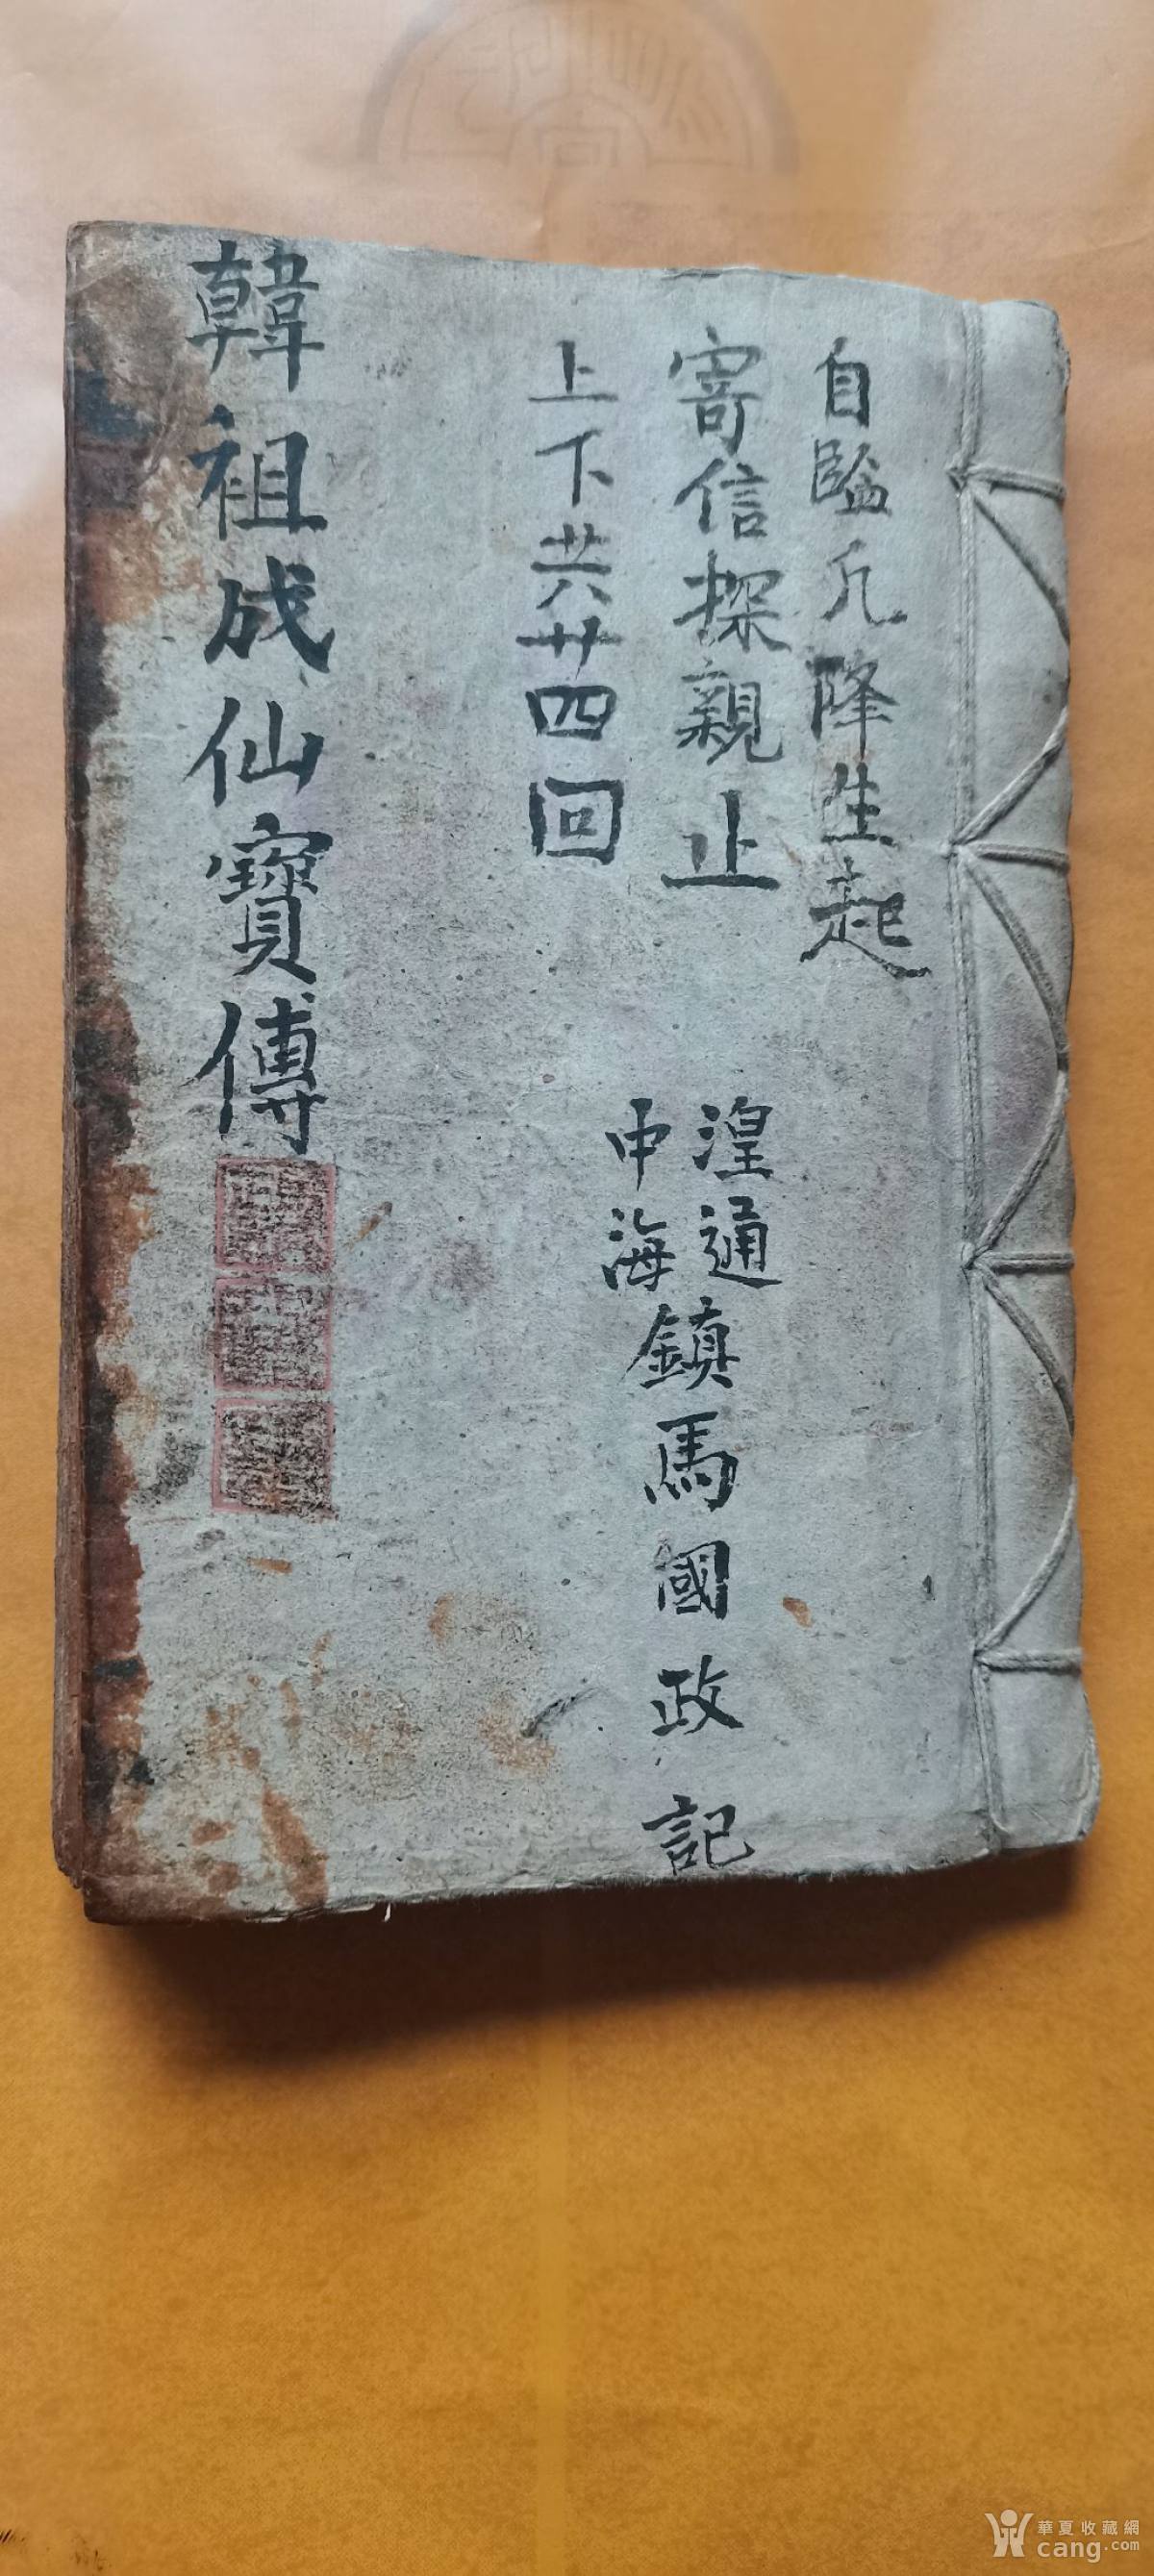 自臨凡降生起
寄信探親止
上下共廿四回
湟通
中海
鎮馬國政記
韓祖成仙寶傳
華夏收藏網
cang.com